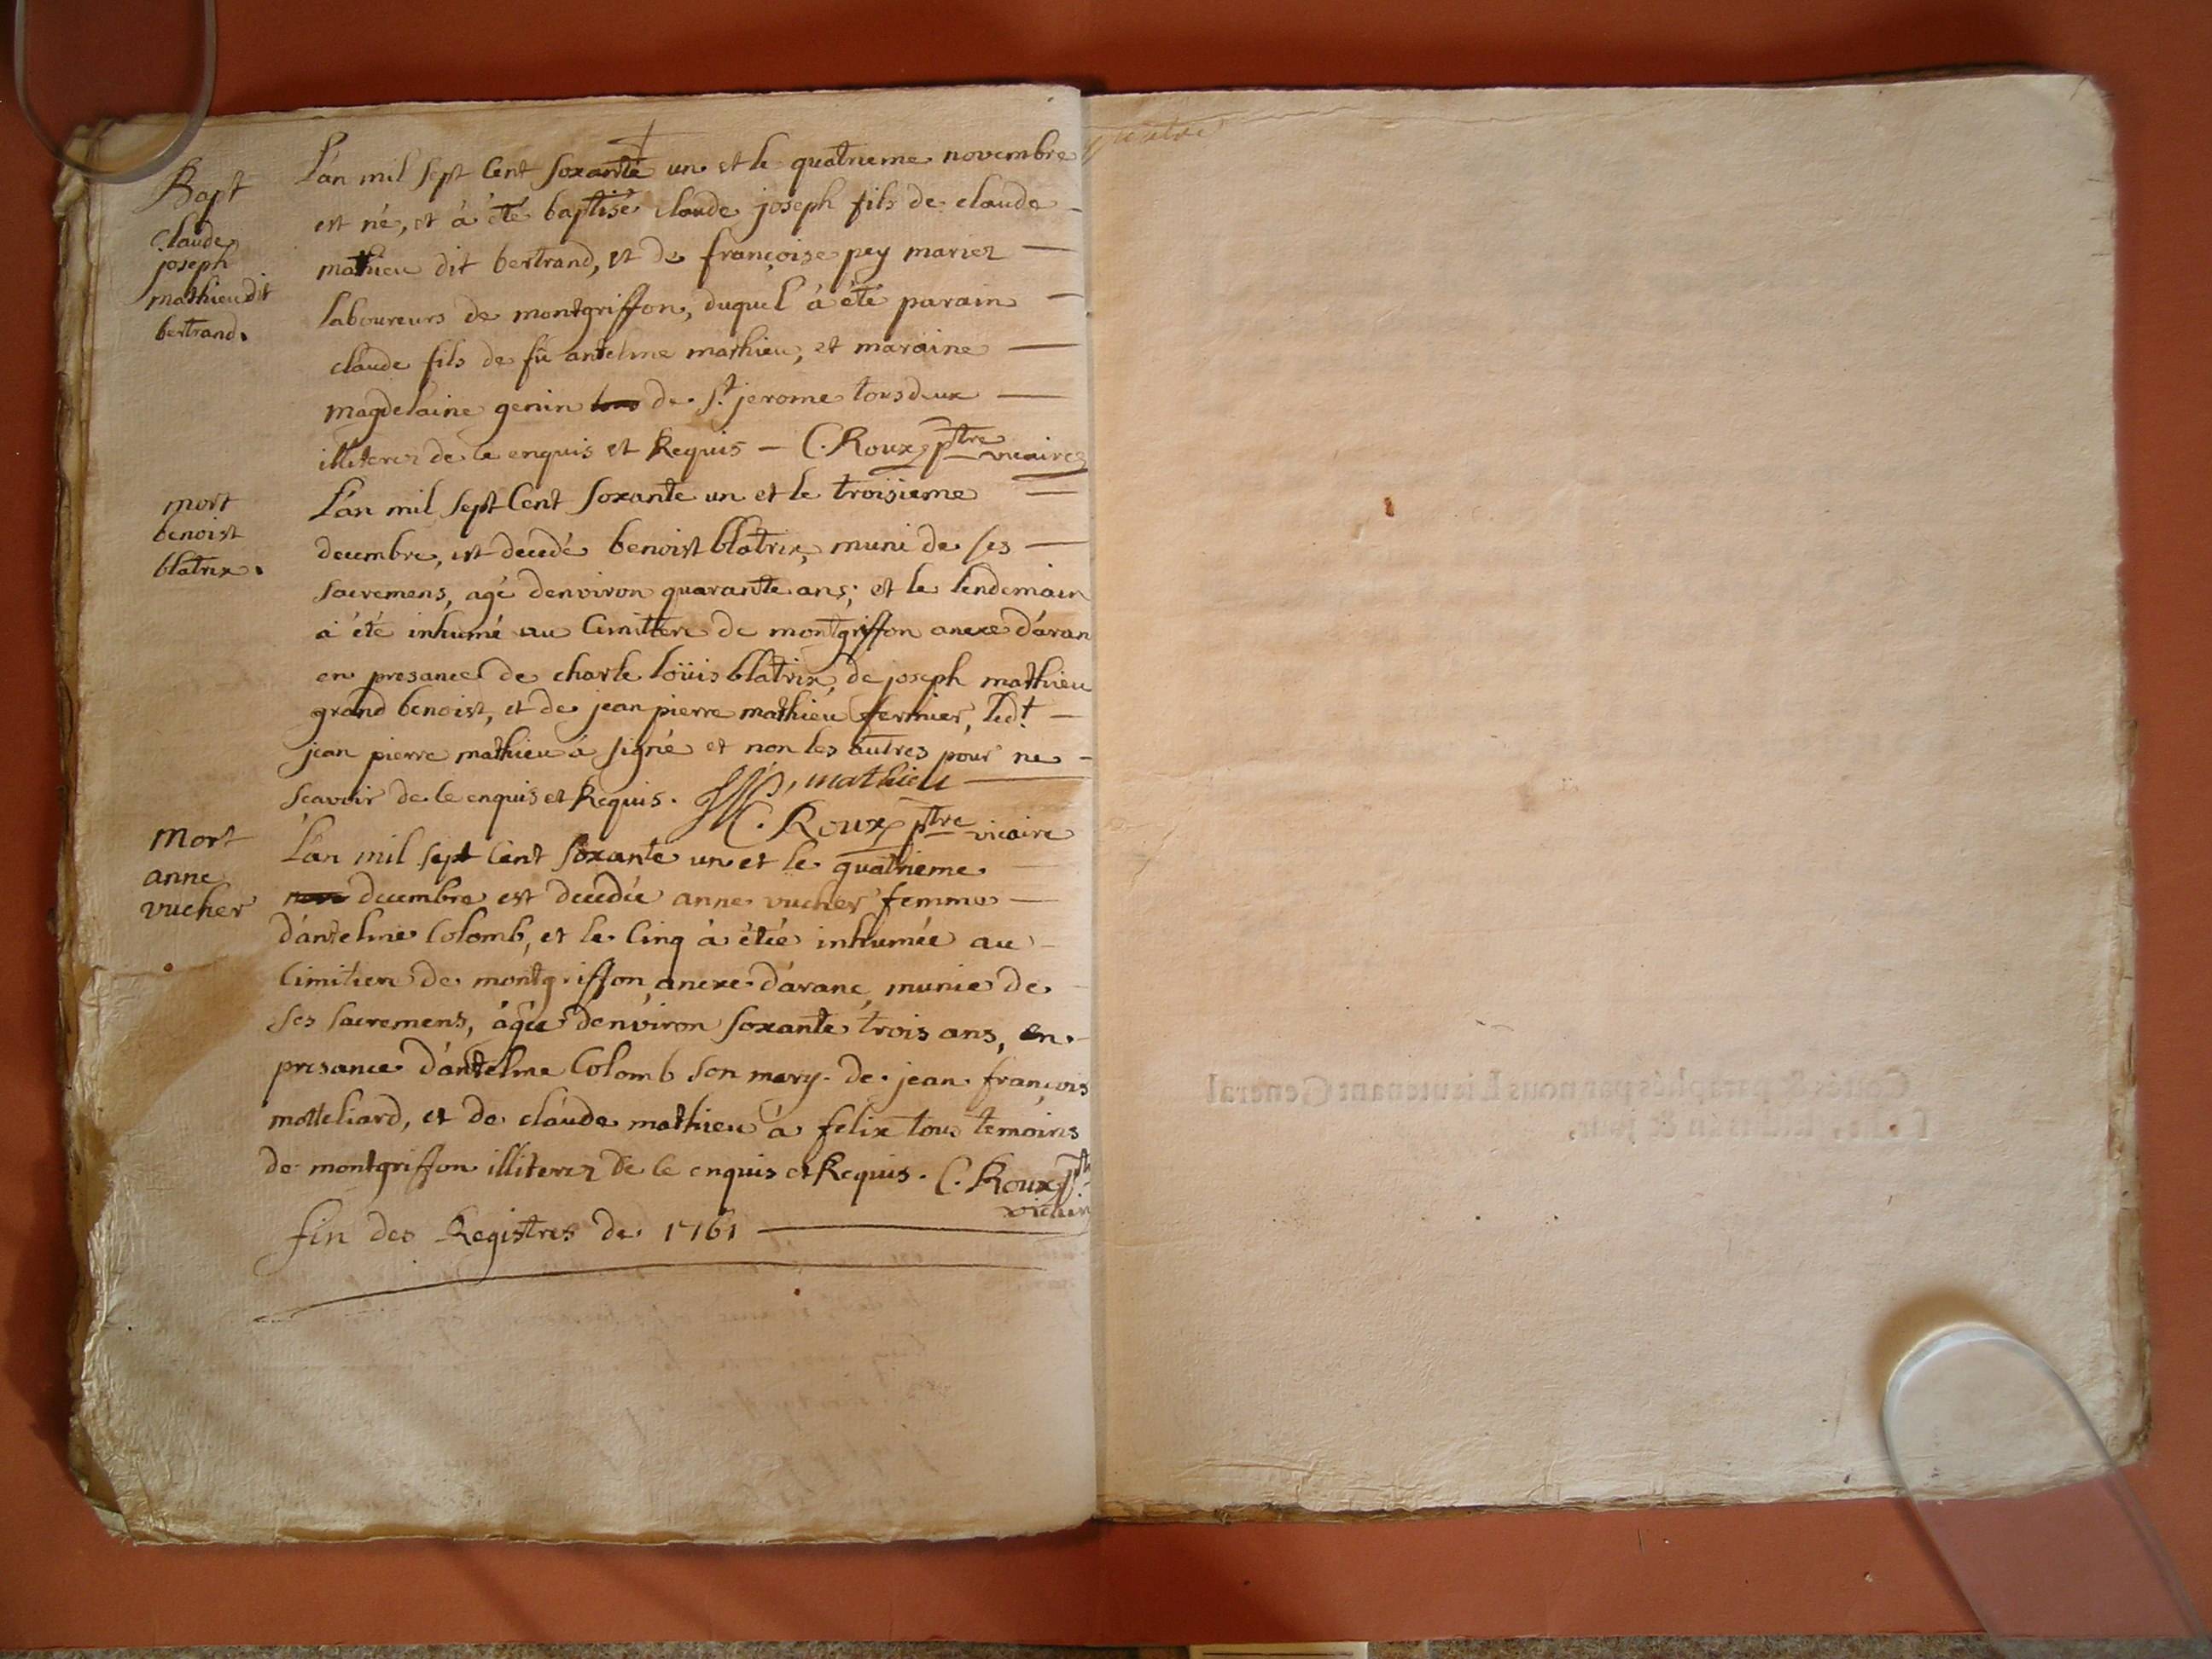 Bapt
claude
joseph
mathieu dit
bertrand.
L'an mil sept Cent soxante un et le quatrieme novembre
est né, et à été baptisé claude joseph fils de claude
mathieu dit bertrand, et de françoise pey mariez
laboureurs de montgriffon, duquel à été parain
claude fils de fû antelme mathieu, et maraine
magdelaine genin de St jerome tous deux
illiterez de ce enquis et Requis – C. Roux ptre vicaire
mort
benoist
blatrix.
L'an mil sept Cent soxante un et le troisieme
decembre, est decedé benoist blatrix, muni de ses
sacremens, agé denviron quarante ans; et le lendemain
à été inhumé au Cimittere de montgriffon anexe d'aran
en presance de charle loüis blatrix, de joseph mathieu
grand benoist, et de jean pierre mathieu fermier, led.t
jean pierre mathieu à signé et non les autres pour ne
scavoir de ce enquis et Requis. mathieu
C. Roux ptre vicaire
Mort
anne
vucher
L'an mil sept Cent soxante un et le quatrieme
decembre est decedée anne vucher femme
d'antelme Colomb, et le Cinq à étée inhumée au
Cimitiere de montgriffon, anexe d'aranc, munie de
ses sacremens, àgée denviron soxante trois ans, en
presance d'antelme Colomb son mary. de jean françois
molleliard, et de claude mathieu à felix tous temoins
de montgriffon illiterez de ce enquis et Requis. C. Roux ptre
vicaire
fin des Registres de 1761
quatre
Cotés & paraphés par nous Lieutenant General